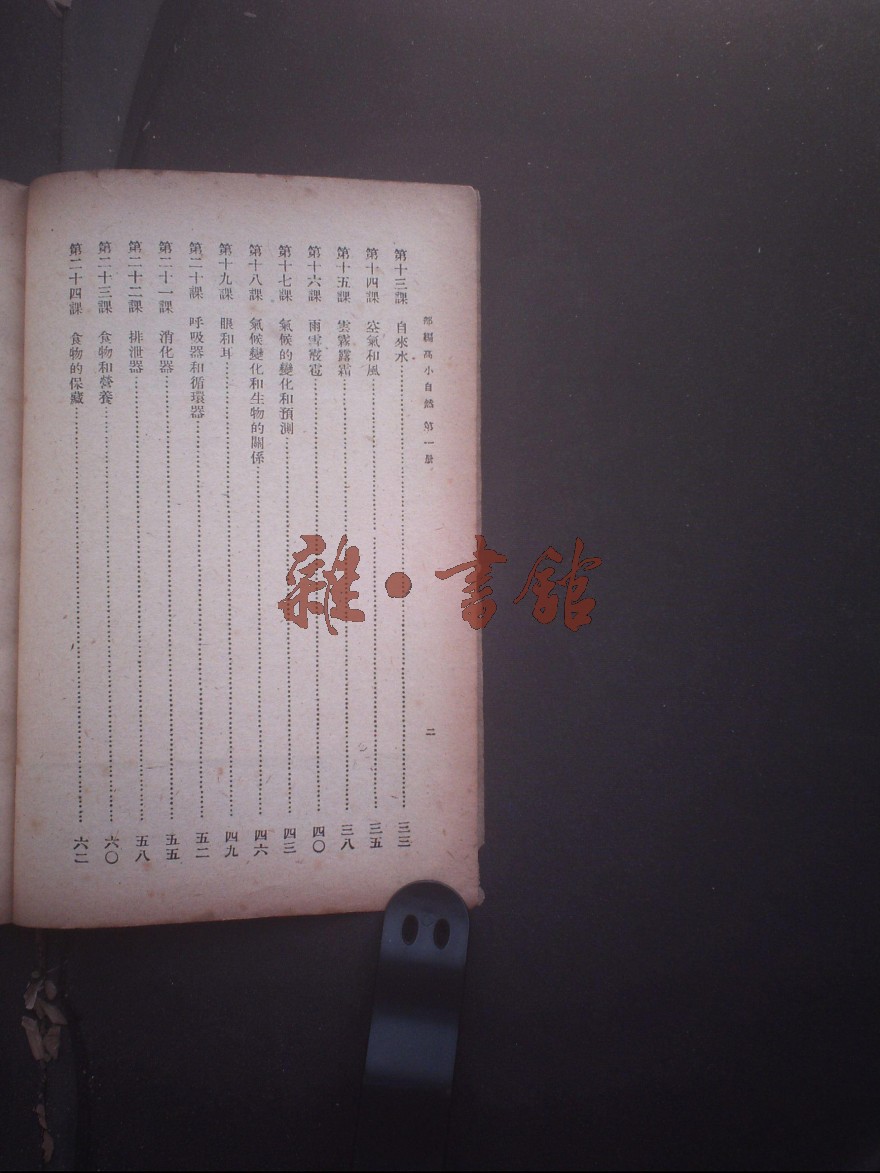 部編高小自然 第一册
二
第十三課 自來水 三三
第十四課 空氣和風 三五
第十五課 雲霧露霜 三八
第十六課 雨雪霰雹 四〇
第十七課 氣候的變化和預測 四三
第十八課 氣候變化和生物的關係 四六
第十九課 眼和耳 四九
第二十課 呼吸器和循環器 五二
第二十一課 消化器 五五
第二十二課 排泄器 五八
第二十三課 食物和營養 六〇
第二十四課 食物的保藏 六二
雜·書館